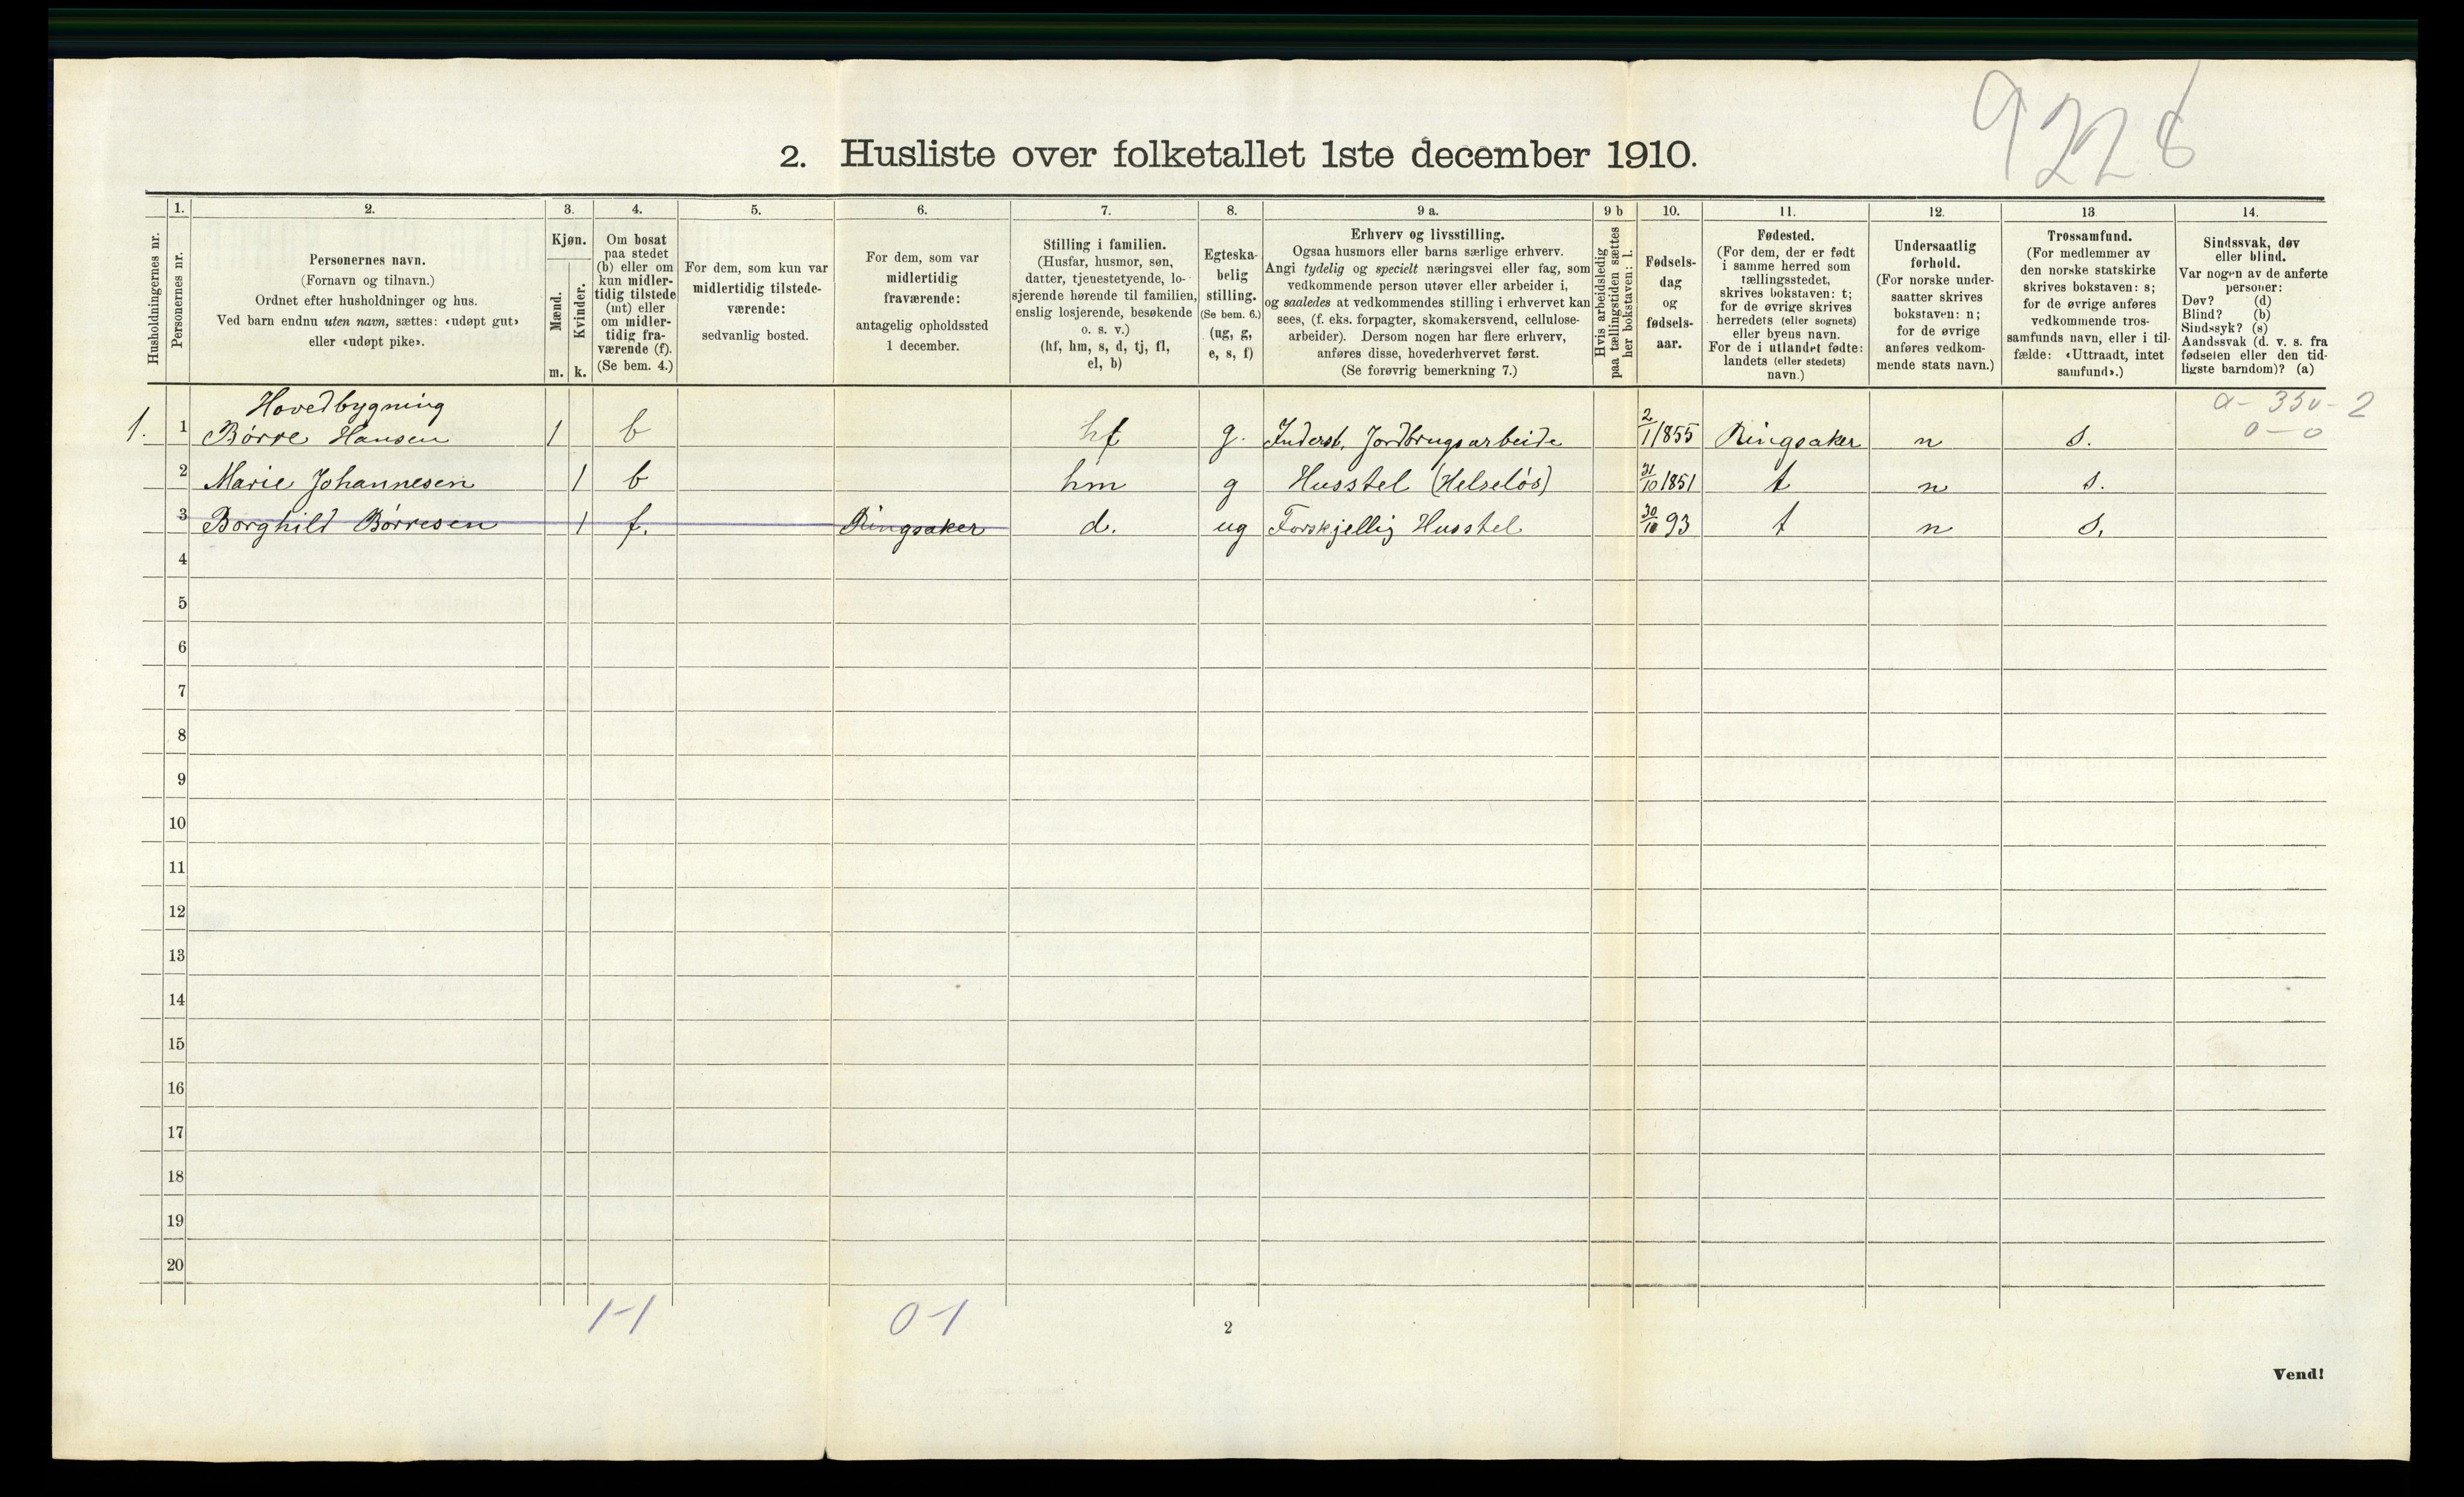 9228
2. Husliste over folketallet 1ste december 1910.
Husholdningernes nr.
1.
Personernes nr.
2.
Personernes navn.
(Fornavn og tilnavn.)
Ordnet efter husholdninger og hus.
Ved barn endnu uten navn, sættes: «udøpt gut»
eller «udøpt pike».
3.
Kjøn.
Mænd.
Kvinder.
m. k.
4.
Om bosat
paa stedet
(b) eller om
kun midler-
tidig tilstede
(mt) eller
om midler-
tidig fra-
værende (f).
(Se bem. 4.)
5.
For dem, som kun var
midlertidig tilstede-
værende:
sedvanlig bosted.
6.
For dem, som var
midlertidig
fraværende:
antagelig opholdssted
1 december.
7.
Stilling i familien.
(Husfar, husmor, søn,
datter, tjenestetyende, lo-
sjerende hørende til familien,
enslig losjerende, besøkende
o. s. v.)
(hf, hm, s, d, tj, fl,
el, b)
8.
Egteska-
belig
stilling.
(Se bem. 6.)
(ug, g,
e, s, f)
9 a.
Erhverv og livsstilling.
Ogsaa husmors eller barns særlige erhverv.
Angi tydelig og specielt næringsvei eller fag, som
vedkommende person utøver eller arbeider i,
og saaledes at vedkommendes stilling i erhvervet kan
sees, (f. eks. forpagter, skomakersvend, cellulose-
arbeider). Dersom nogen har flere erhverv,
anføres disse, hovederhvervet først.
(Se forøvrig bemerkning 7.)
9 b
Hvis arbeidsledig
paa tællingstiden sættes
her bokstaven: l.
10.
Fødsels-
dag
og
fødsels-
aar.
11.
Fødested.
(For dem, der er født
i samme herred som
tællingsstedet,
skrives bokstaven: t;
for de øvrige skrives
herredets (eller sognets)
eller byens navn.
For de i utlandet fødte:
landets (eller stedets)
navn.)
12.
Undersaatlig
forhold.
(For norske under-
saatter skrives
bokstaven: n;
for de øvrige
anføres vedkom-
mende stats navn.)
13
Trossamfund.
(For medlemmer av
den norske statskirke
skrives bokstaven: s;
for de øvrige anføres
vedkommende tros-
samfunds navn, eller i til-
fælde: «Uttraadt, intet
samfund».)
14.
Sindssvak, døv
eller blind.
Var nogen av de anførte
personer:
Døv? (d)
Blind? (b)
Sindssyk? (s)
Aandssvak (d. v. s. fra
fødselen eller den tid-
ligste barndom)? (a)
Hovedbygning a- 350-2
1. 1 Börre Hansen 1 b hf g. Inderst, Jordbrugsarbeide 2/1 1855 Ringsaker n s. 0-0
2 Marie Johannesen 1 b hm g Husstel (Helseløs) 31/10 1851 t n s.
3 Borghild Børresen 1 f. Ringsaker d. ug Forskjellig Husstel 30/10 93 t n s.
4
5
6
7
8
9
10
11
12
13
14
15
16
17
18
19
20
1-1 0-1
2
Vend!